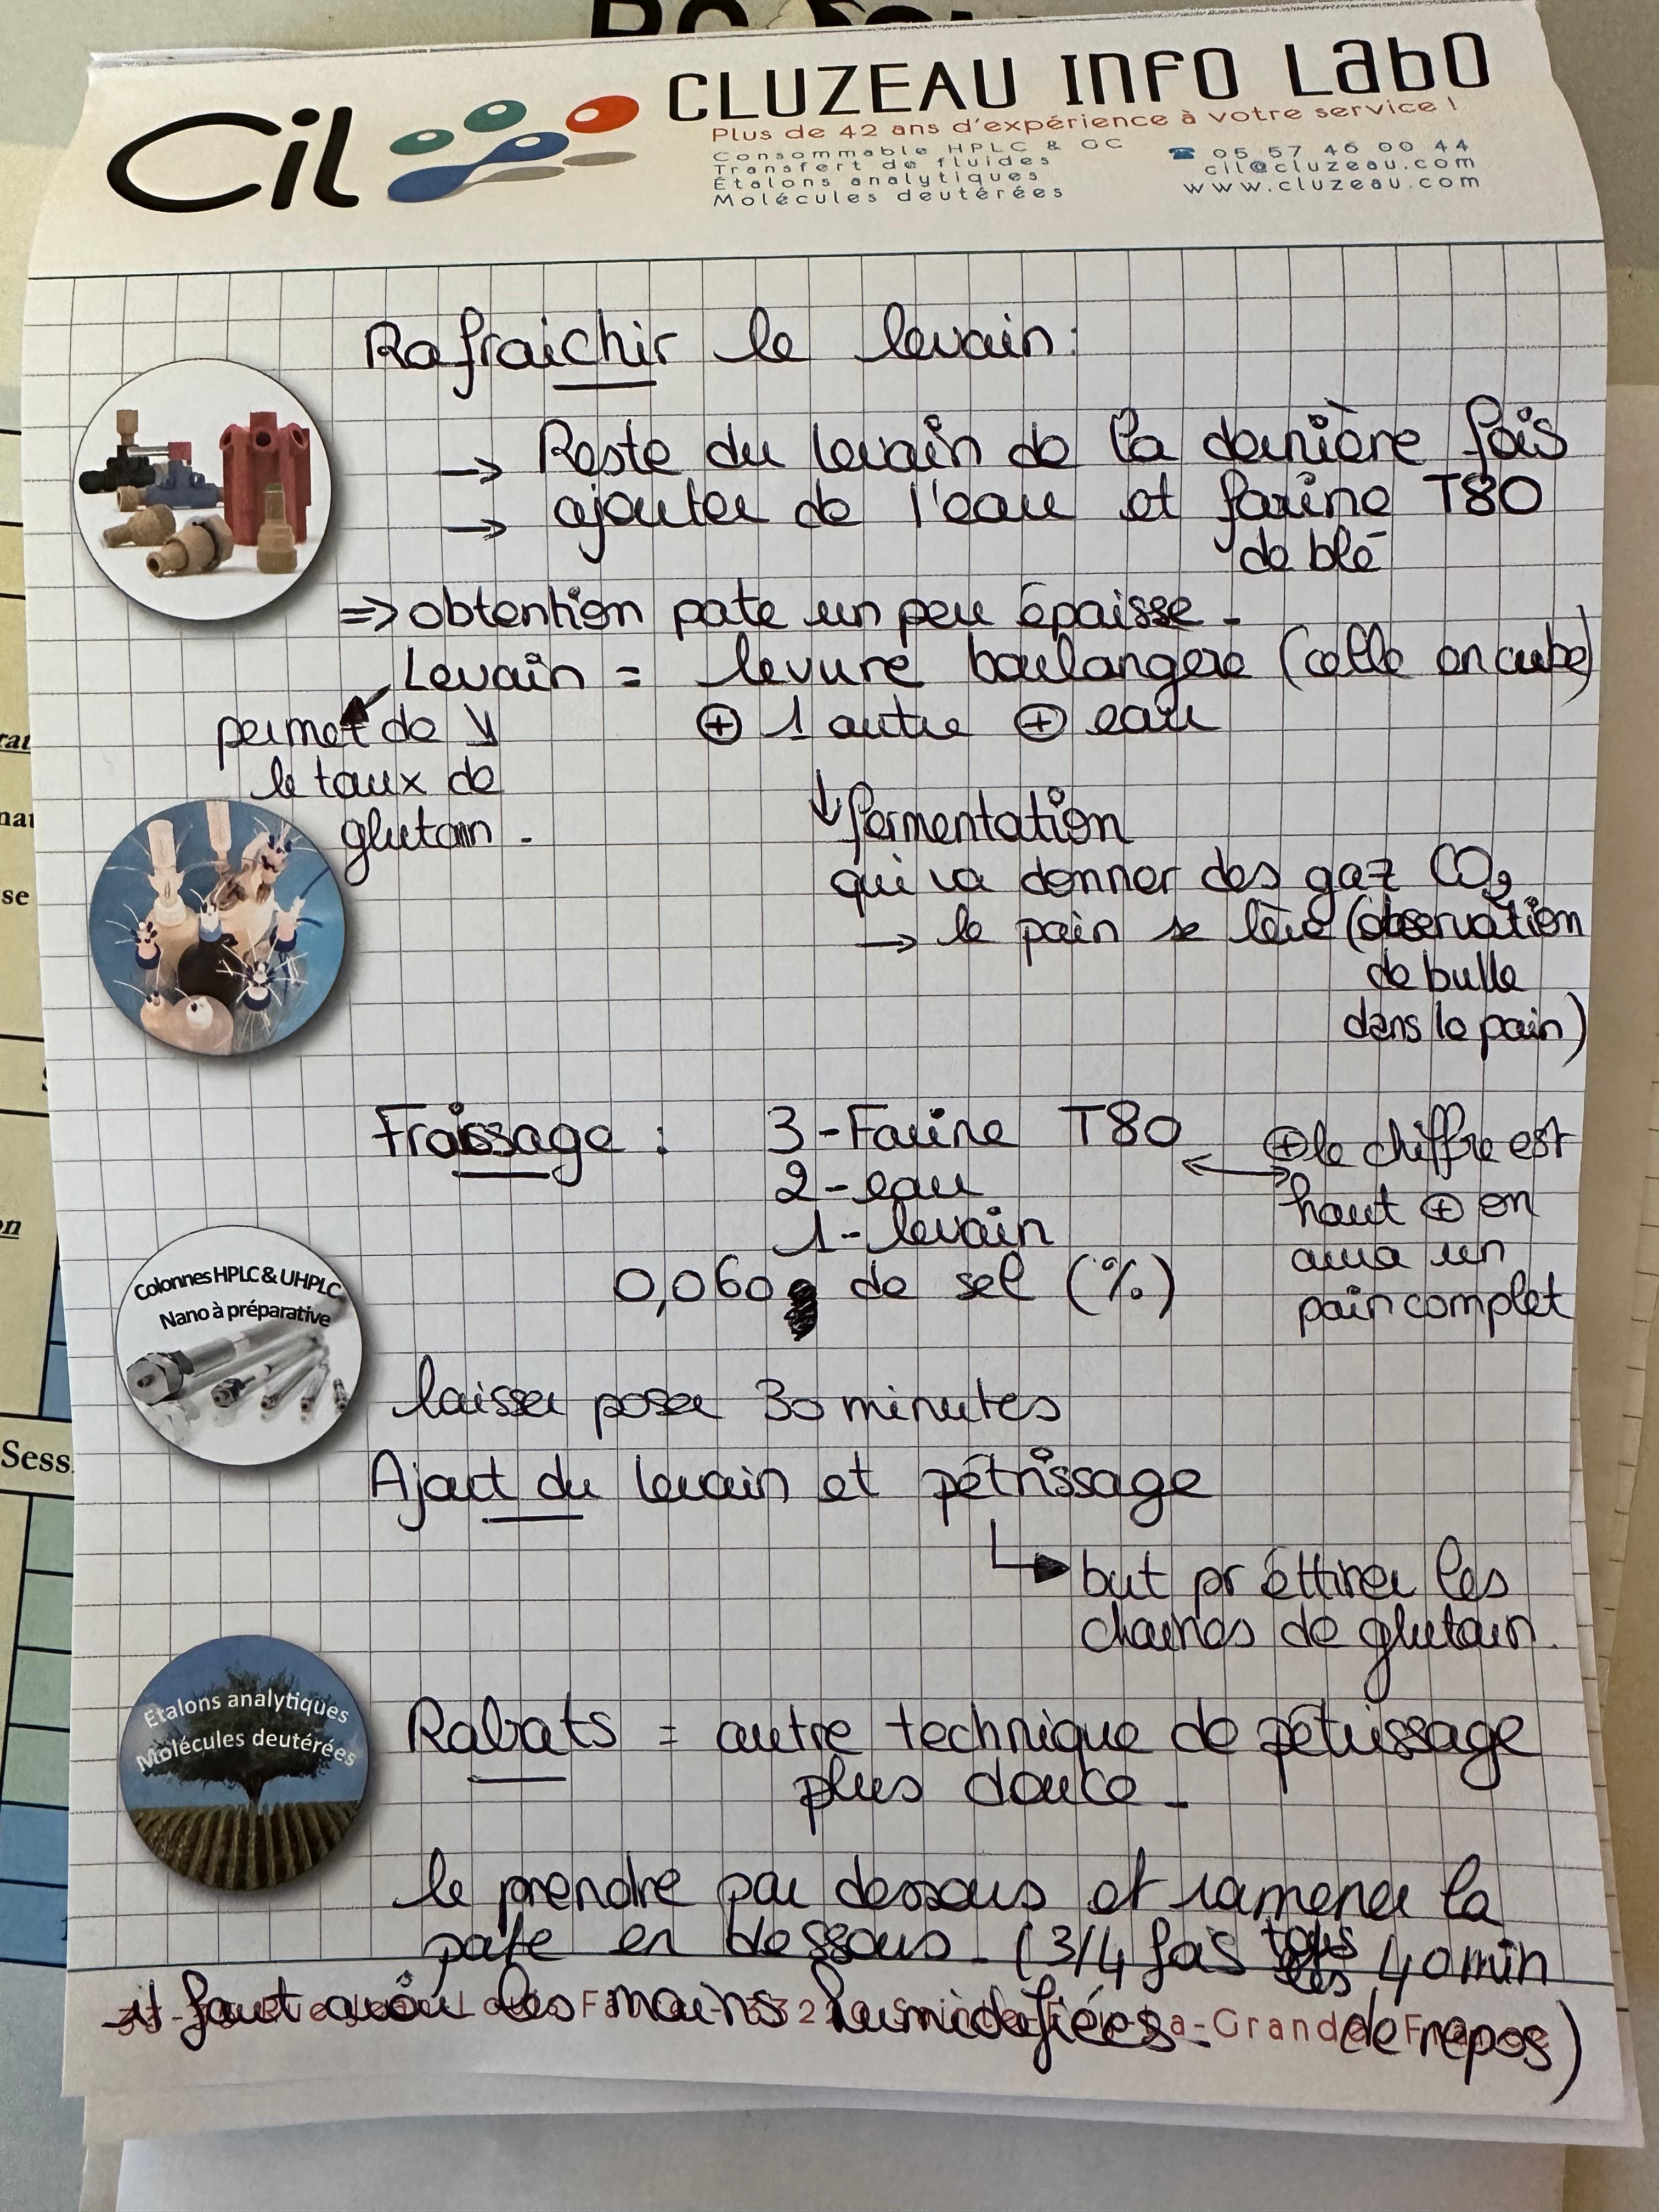 Cil
CLUZEAU INFO LABO
Plus de 42 ans d'expérience à votre service !
Consommable HPLC & GC
Transfert de fluides
Étalons analytiques
Molécules deutérées
☎ 05 57 46 00 44
cil@cluzeau.com
www.cluzeau.com
Rafraichir le levain :
→ Reste du levain de la dernière fois
→ ajouter de l'eau et farine T80
de blé
⇒ obtention pate un peu épaisse.
Levain = levure boulangere (celle en cube)
⊕ 1 autre ⊕ eau
permet de ↘
le taux de
glutain.
↓ fermentation
qui va donner des gaz CO2
→ le pain se lève (observation
de bulle
dans le pain)
Fraissage : 3-Farine T80
2-eau
1-levain
0,060 de sel (%)
⊕ le chiffre est
haut ⊕ on
aura un
pain complet
Colonnes HPLC & UHPLC
Nano à préparative
laisser poser 30 minutes
Ajout du levain et pétrissage
but pr éttirer les
chaines de glutain.
Étalons analytiques
Molécules deutérées
Rabats = autre technique de pétrissage
plus douce.
le prendre par dessous et ramener la
pate en dessous. (3/4 fois tous les 40min
de repos)
il faut avoir les mains humidifiées.